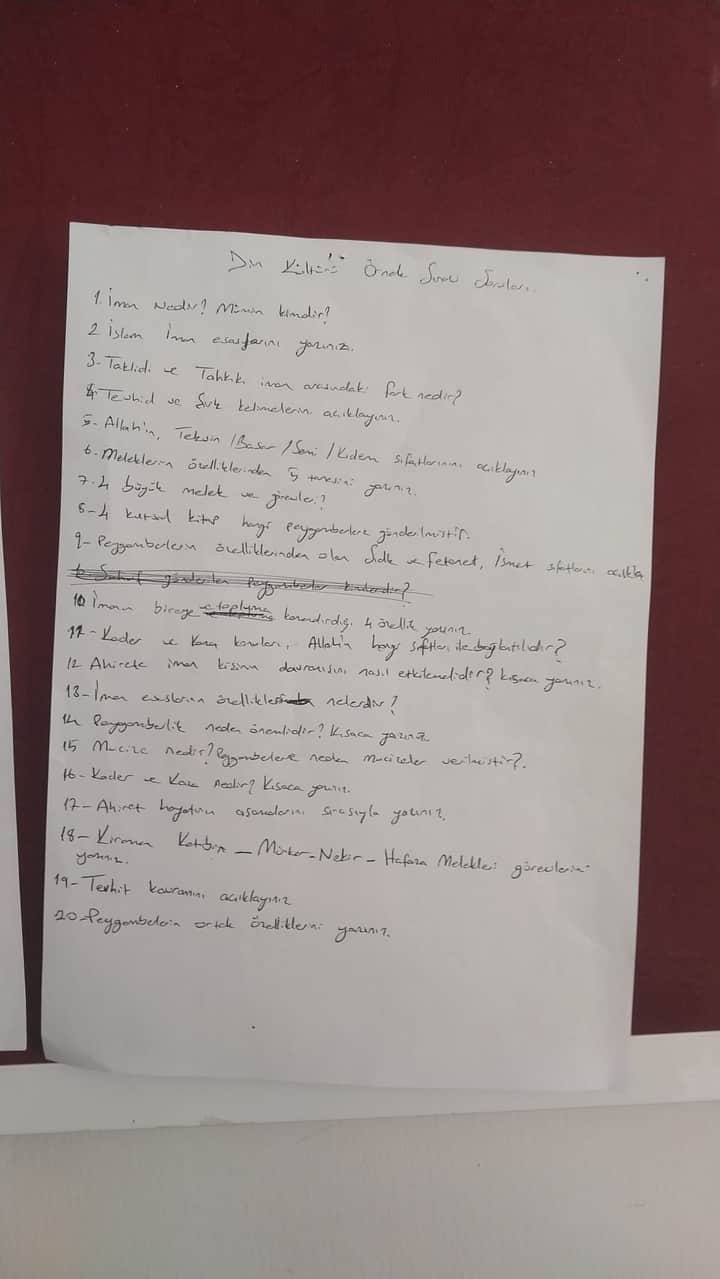 Din Kültürü Örnek Sınav Soruları..
1. İman Nedir? Mümin kimdir?
2 İslam İman esaslarını yazınız.
3- Taklidi ve Tahkiki iman arasındaki fark nedir?
4- Tevhid ve Şirk kelimelerini açıklayınız.
5- Allah'ın, Tekvin / Basar / Semi / Kıdem sıfatlarını açıklayınız
6- Meleklerin özelliklerinden 5 tanesini yazınız.
7- 4 büyük melek ve görevleri?
8- 4 kutsal kitap hangi peygamberlere gönderilmiştir.
9- Peygamberlerin özelliklerinden olan Sıdk ve Fetanet, İsmet sıfatlarını açıkla
10 Suhuf gönderilen Peygamberler kimlerdir?
10 İmanın bireye ve topluma kazandırdığı 4 özellik yazınız
11- Kader ve Kaza konuları, Allah'ın hangi sıfatları ile bağlantılıdır?
12 Ahirete iman kişinin davranışını nasıl etkilemelidir? Kısaca yazınız.
13- İman esaslarının özellikleri nelerdir?
14 Peygamberlik neden önemlidir? Kısaca yazınız
15 Mucize nedir? Peygamberlere neden Mucizeler verilmiştir?.
16- Kader ve Kaza Nedir? Kısaca yazınız.
17- Ahiret hayatının aşamalarını sırasıyla yazınız.
18- Kiramen Katibin - Münker-Nekir - Hafaza Melekleri görevlerini
yazınız.
19- Tevhit kavramını açıklayınız
20- Peygamberlerin ortak özelliklerini yazınız.